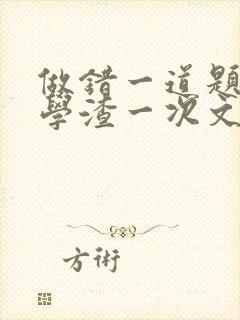 做錯一道題
學渣一次文
方術